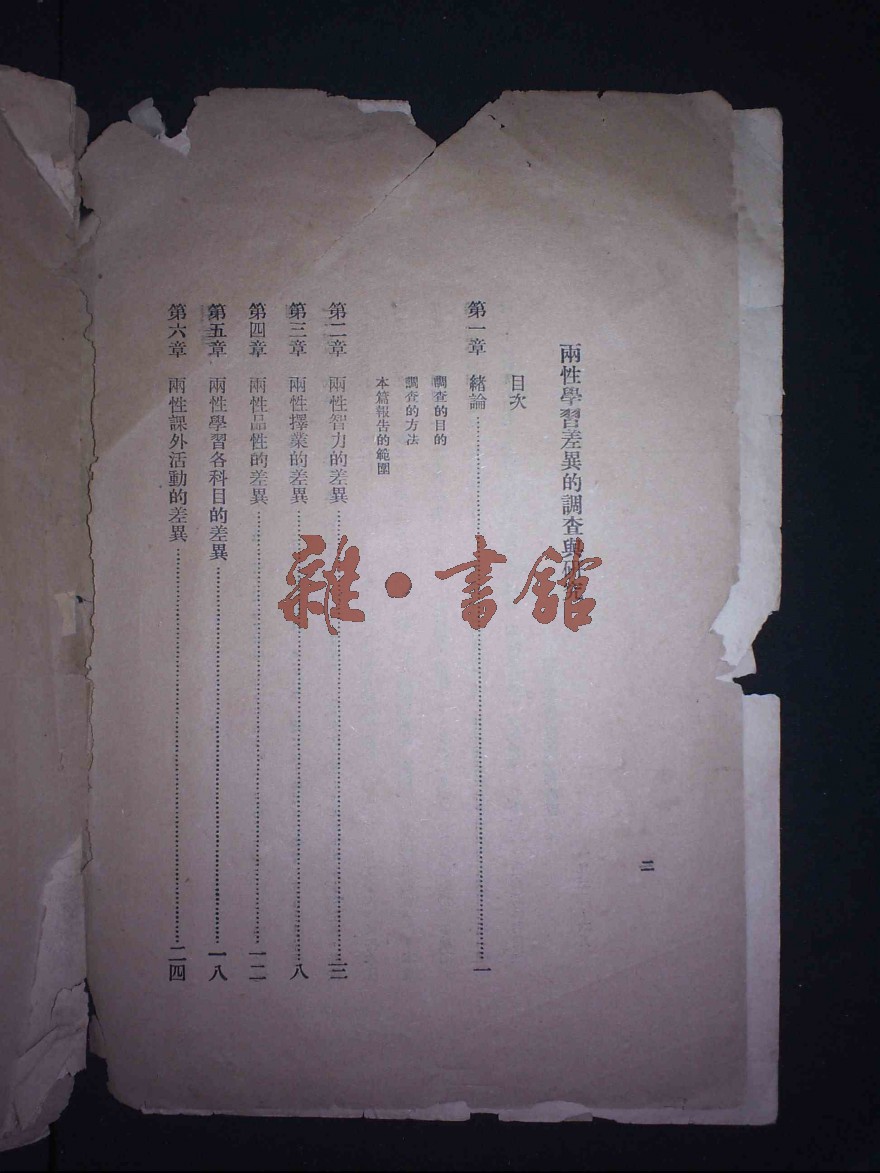 二
兩性學習差異的調查與研究
目次
第一章　緒論……一
調查的目的
調查的方法
本篇報告的範圍
第二章　兩性智力的差異……三
第三章　兩性擇業的差異……八
第四章　兩性品性的差異……一二
第五章　兩性學習各科目的差異……一八
第六章　兩性課外活動的差異……二四
雜·書館